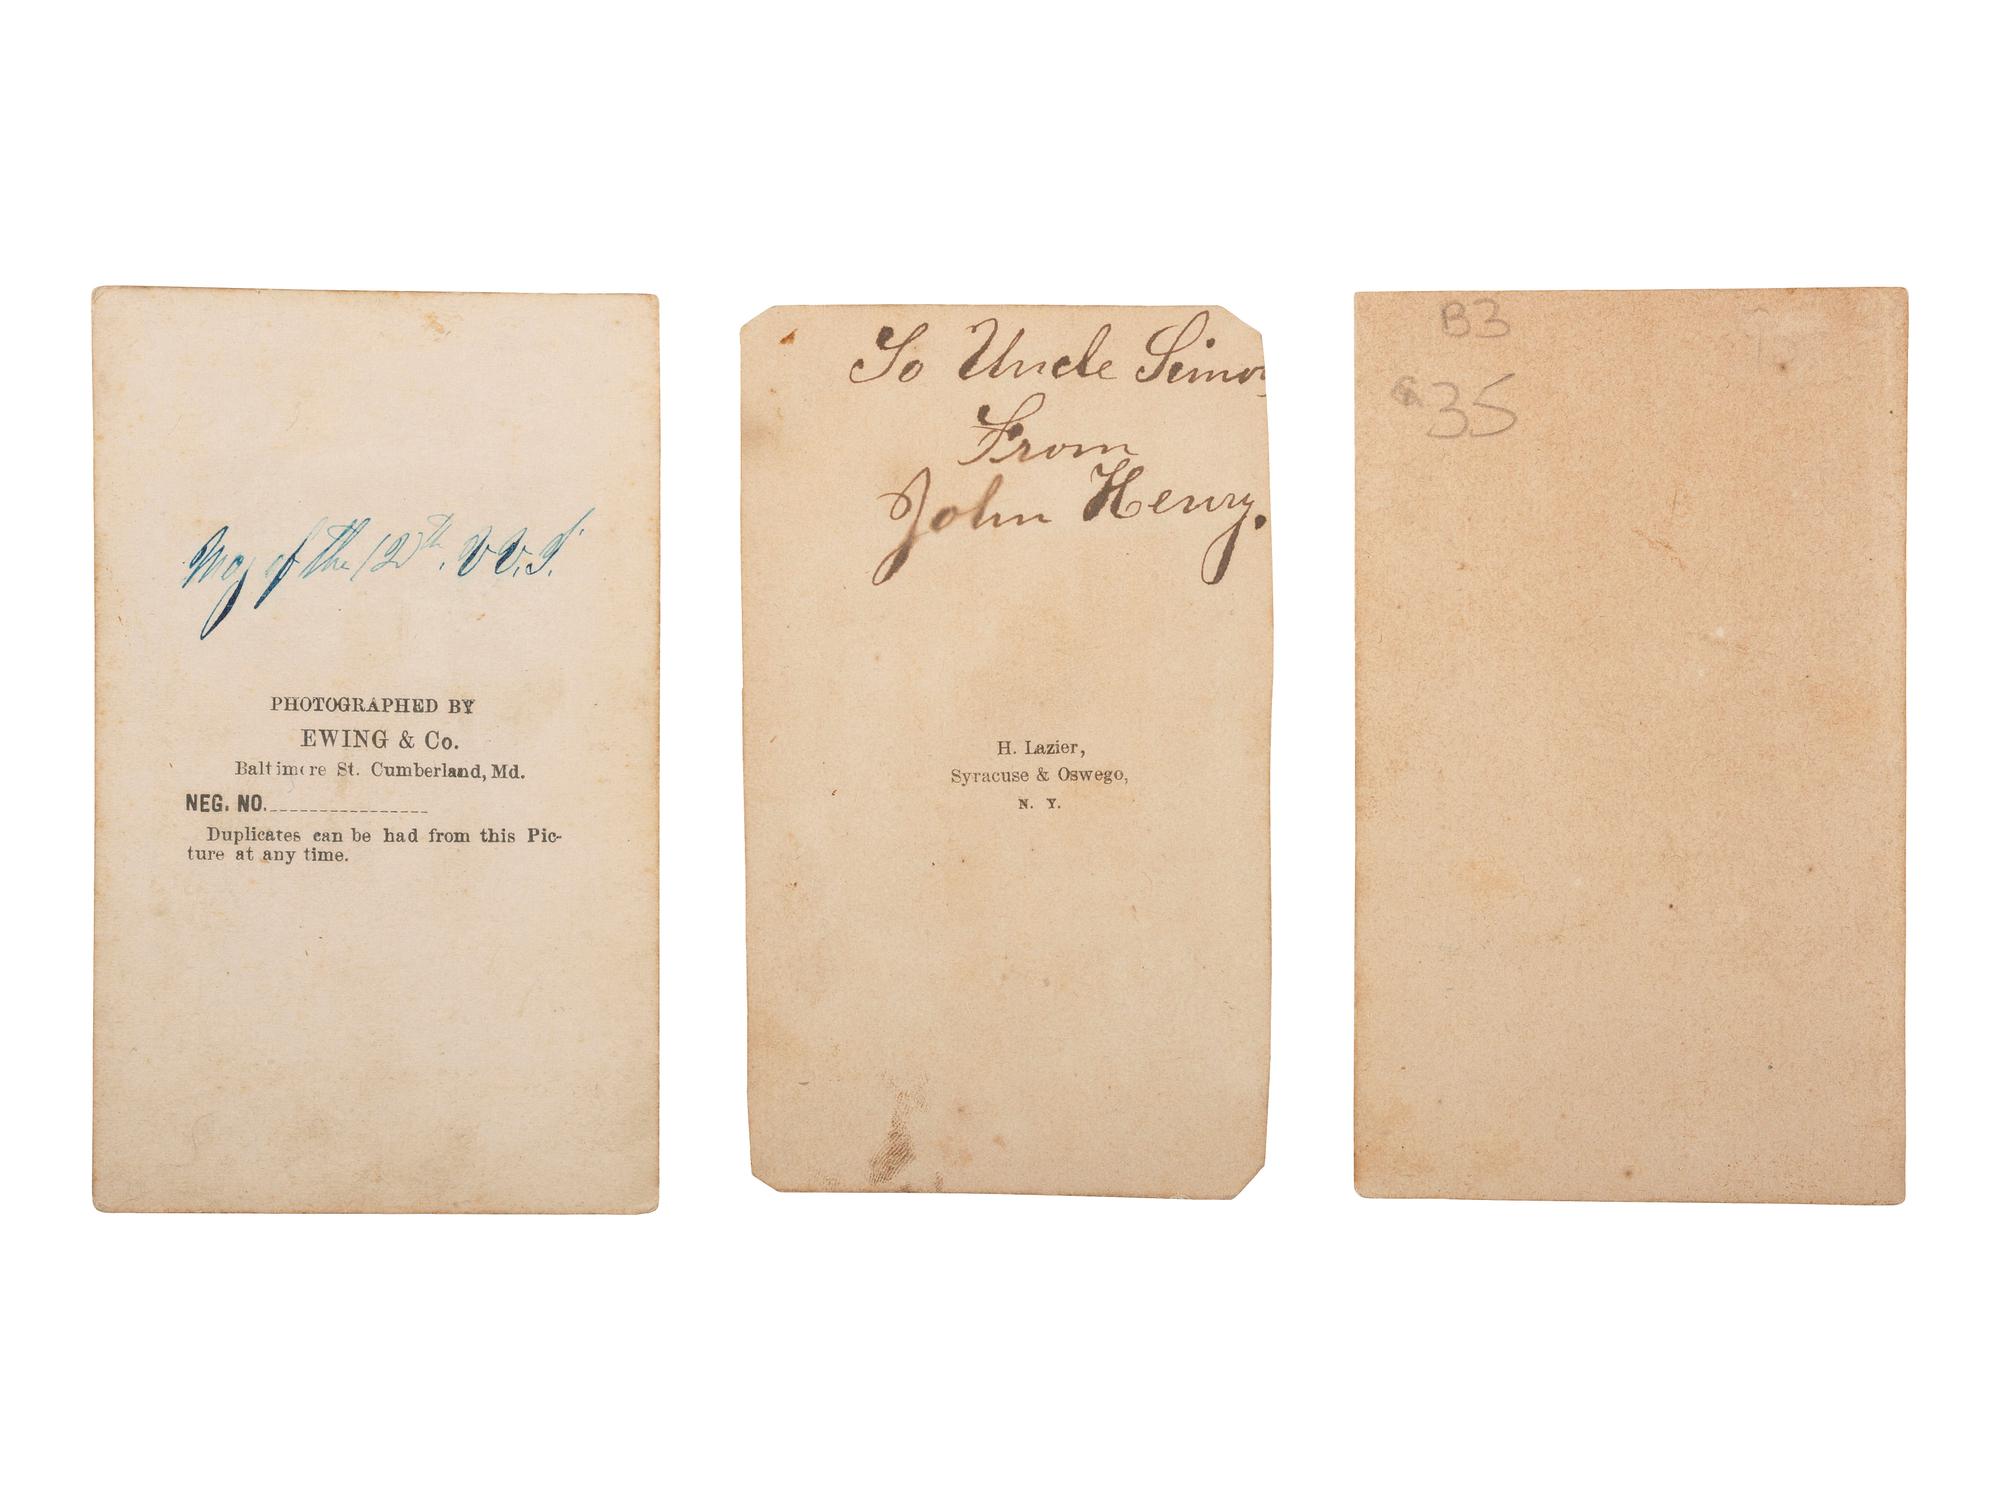 Maj of the 12th. V.V.I.
PHOTOGRAPHED BY
EWING & Co.
Baltimore St. Cumberland, Md.
NEG. NO.
Duplicates can be had from this Pic-
ture at any time.
To Uncle Simon
From
John Henry.
H. Lazier,
Syracuse & Oswego,
N. Y.
B3
35